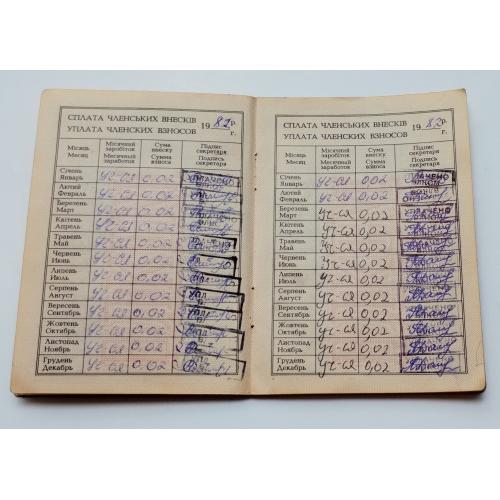 СПЛАТА ЧЛЕНСЬКИХ ВНЕСКІВ
УПЛАТА ЧЛЕНСКИХ ВЗНОСОВ
19 82 р. г.
Місяць Месяц
Місячний заробіток Месячный заработок
Сума внеску Сумма взноса
Підпис секретаря Подпись секретаря
Січень Январь уч-ся 0,02
Лютий Февраль уч-ся 0,02
Березень Март уч-ся 0,02
Квітень Апрель уч-ся 0,02
Травень Май уч-ся 0,02
Червень Июнь уч-ся 0,02
Липень Июль уч-ся 0,02
Серпень Август уч-ся 0,02
Вересень Сентябрь уч-ся 0,02
Жовтень Октябрь уч-ся 0,02
Листопад Ноябрь уч-ся 0,02
Грудень Декабрь уч-ся 0,02
СПЛАТА ЧЛЕНСЬКИХ ВНЕСКІВ
УПЛАТА ЧЛЕНСКИХ ВЗНОСОВ
19 р. г.
Місяць Месяц
Місячний заробіток Месячный заработок
Сума внеску Сумма взноса
Підпис секретаря Подпись секретаря
Січень Январь уч-ся 0,02
Лютий Февраль уч-ся 0,02
Березень Март уч-ся 0,02
Квітень Апрель уч-ся 0,02
Травень Май уч-ся 0,02
Червень Июнь уч-ся 0,02
Липень Июль уч-ся 0,02
Серпень Август уч-ся 0,02
Вересень Сентябрь уч-ся 0,02
Жовтень Октябрь уч-ся 0,02
Листопад Ноябрь уч-ся 0,02
Грудень Декабрь уч-ся 0,02